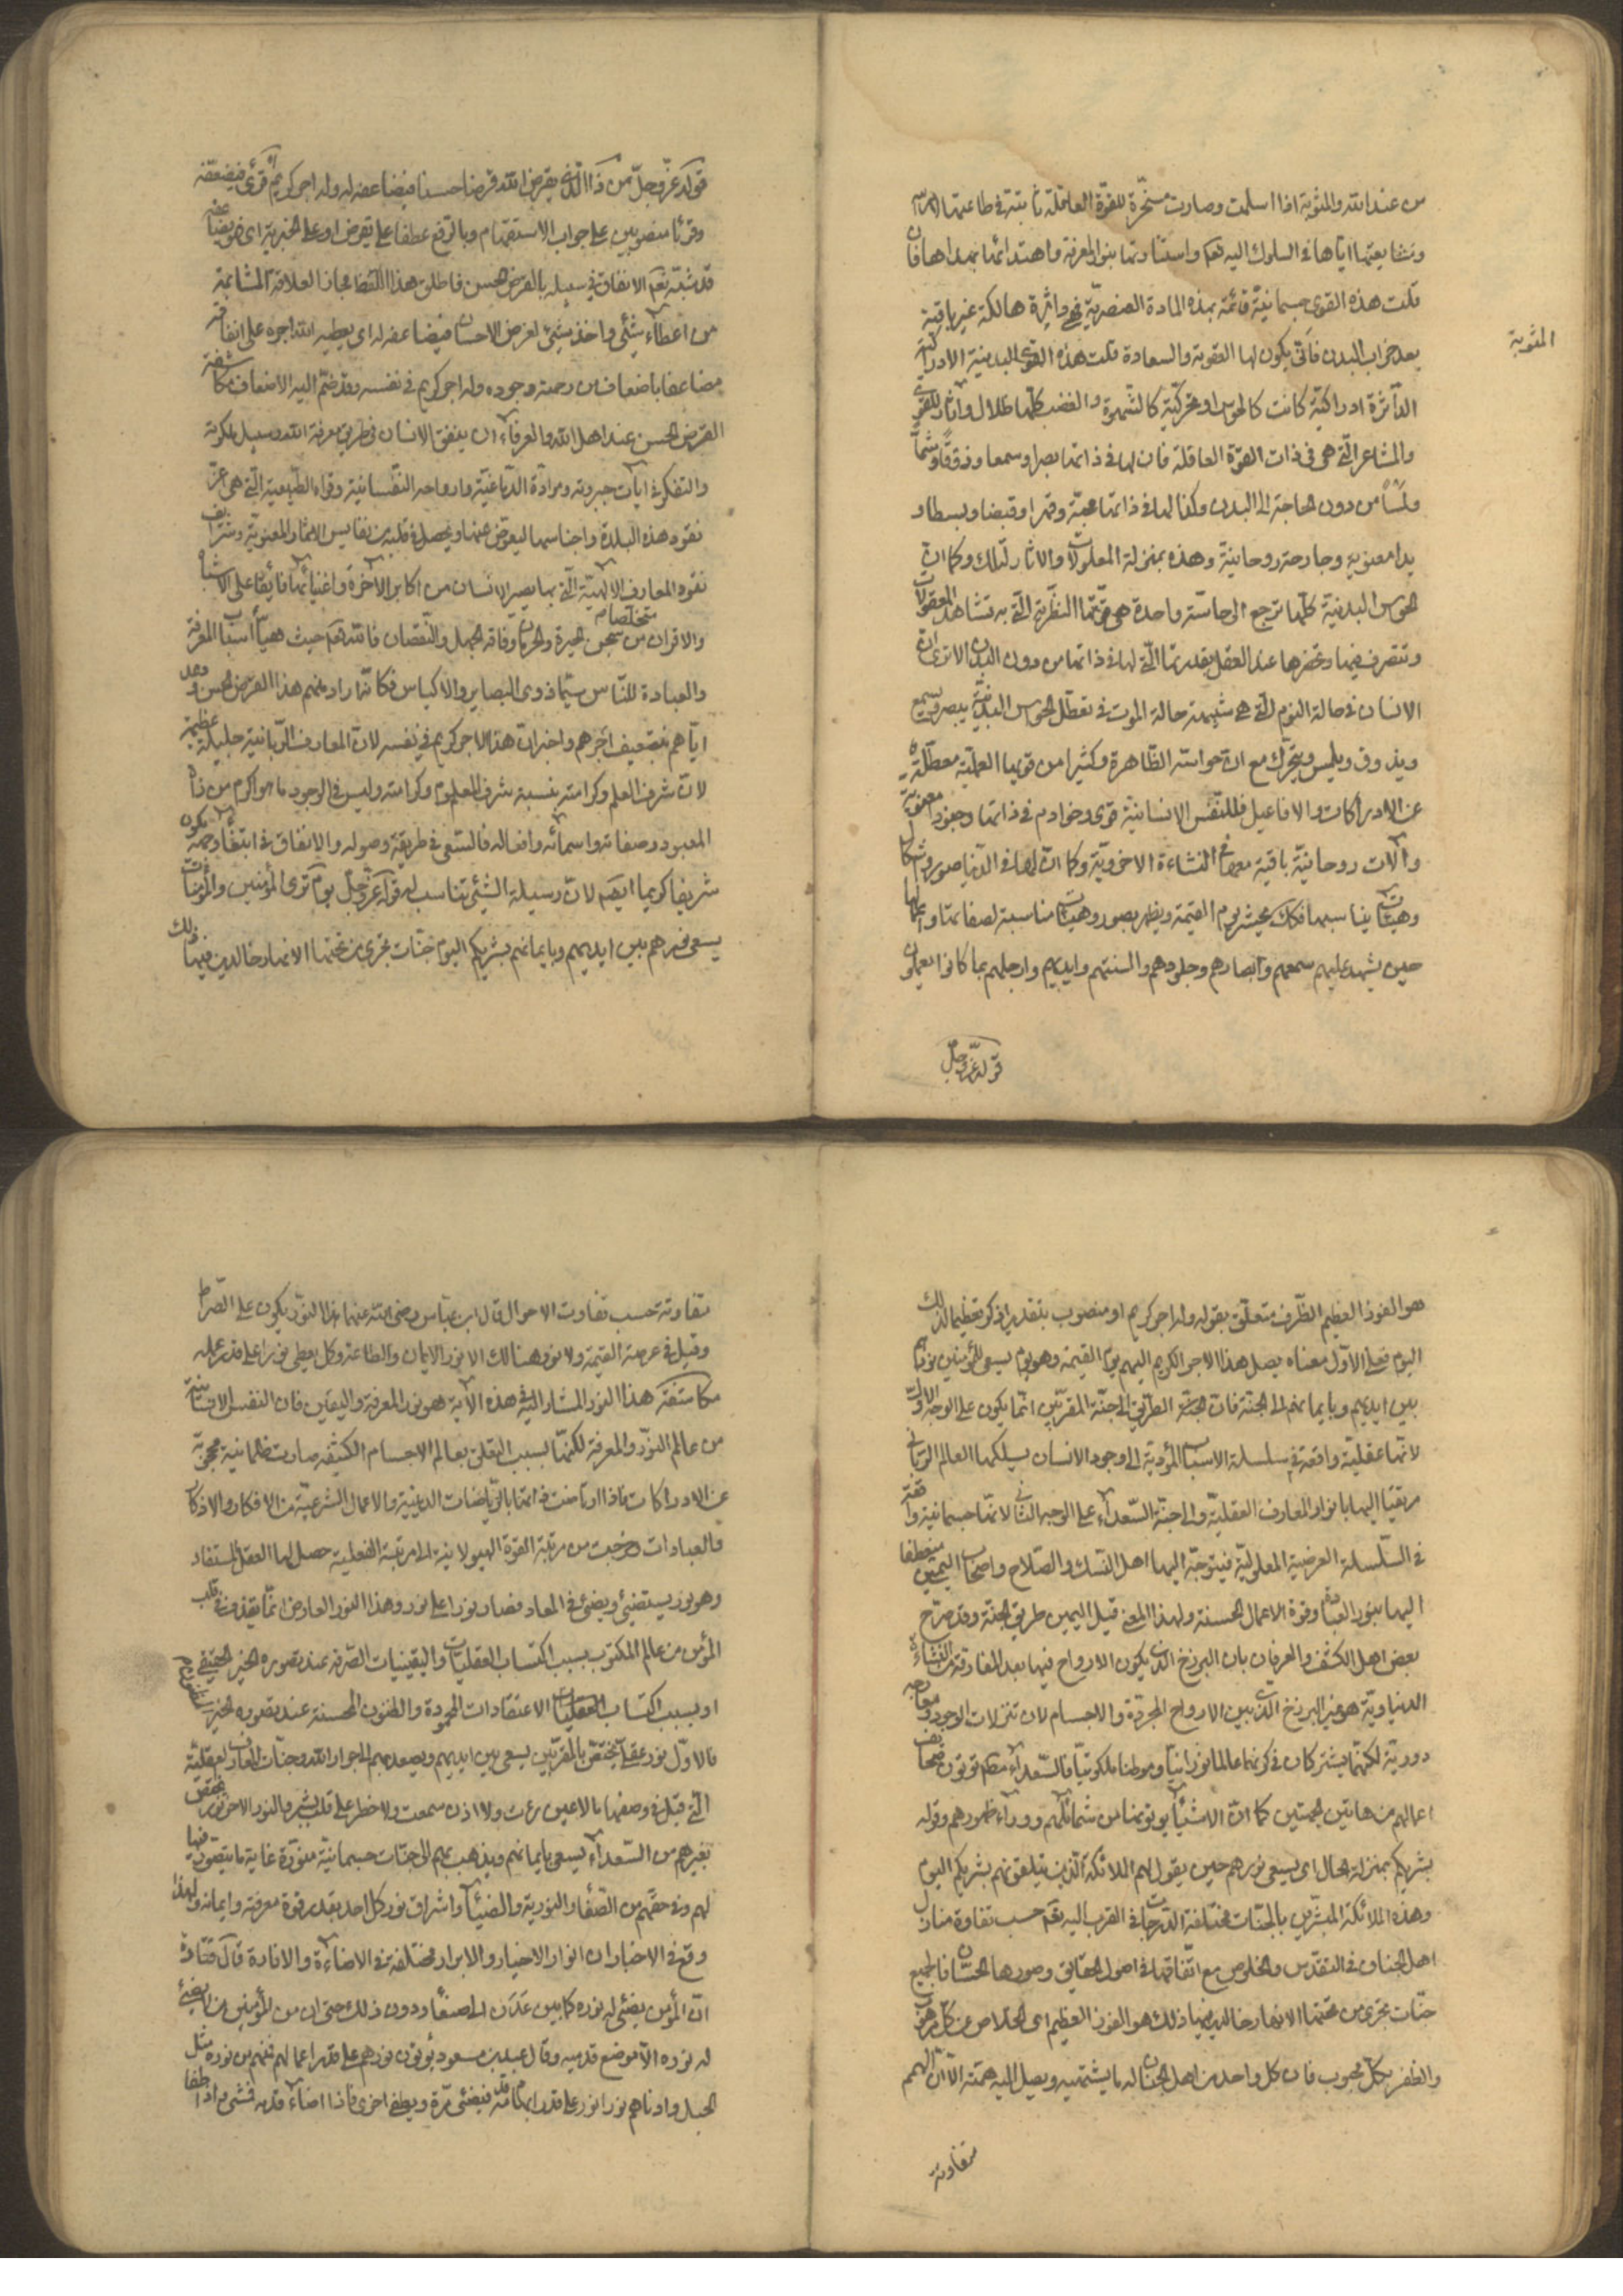 من عند الله والمثوبة اذا اسلمت وصارت مسخّرة للقوّة العاقلة ثابتة فى طاعتها
ومشايعتها اياها فى السلوك اليه تعم واستنارتها بنور المعرفة واهتدائها بهداها فان
قلت هذه القوى جسمانيّة قائمة بهذه المادة العنصريّة فهى داثرة هالكة غير باقية
بعد خراب البدن فانّى يكون لها العقوبة والسعادة قلت هذه القوى البدنية الادراكية
المثوبة
الداثرة ادراكيّة كانت كالحواس او تحركيّة كالشهوة والغضب كلّها ظلال وآثار للقوى
والمشاعر الّتى هى فى ذات القوّة العاقلة فان لها فى ذاتها بصرا وسمعا وذوقا وشمّا
ولمسا من دون الحاجة الى البدن وكذا لها فى ذاتها محبّة وقهرا وقبضا وبسطا و
يدا معنوية وجارحة روحانية وهذه بمنزلة المعلولات والاثار لتلك وكما ان
الحواس البدنيّة كلّها ترجع الى حاسّة واحدة هى قوّتها النظريّة الّتى به تشاهد المعقولات
وتتصرف فيها وتحضرها عند العقل بقدرتها الّتى لها فى ذاتها من دون البدن الا ترى ان
الانسان فى حالة النوم الّتى هى شبيهة حالة الموت فى تعطّل الحواس البدنيّة يبصر ويسمع
ويذوق ويلمس ويتحرّك مع ان حواسّه الظّاهرة وكثيرا من قويها العمليّة معطّلة
عن الادراكات والافاعيل فللنفس الانسانيّة قوى وخوادم فى ذاتها وجنود معنويّة
وآلات روحانيّة باقية معها فى النشاءة الاخرويّة وكما انّ لها فى الدّنيا صور واشكال
وهيئات يناسبها فكك يحشر يوم القيمة ويظهر بصور وهيئات مناسبة لصفاتها واعمالها
حين يشهد عليهم سمعهم وابصارهم وجلودهم والسنتهم وايديهم وارجلهم بما كانوا يعملون
قوله عزّ وجلّ
قوله عزّ وجلّ من ذا الّذى يقرض الله قرضا حسنا فيضاعفه له وله اجر كريم قرئ فيضعّفه
وقرئا منصوبين على جواب الاستفهام وبالرفع عطفا على يقرض او على الخبرية اى فهو يضاعفه
قد شبّه تعم الانفاق فى سبيله بالقرض الحسن فاطلق هذا اللفظ مجازا لعلاقة المشابهة
من اعطاء شئ واخذ شئ لعوض الاحسان فيضاعفه له اى يعطيه الله اجره على انفاقه
مضاعفا باضعاف من رحمة وجوده وله اجر كريم فى نفسه وقد ضمّ اليه الاضعاف مكاشفة
القرض الحسن عند اهل الله والعرفاء ان ينفق الانسان فى طريق معرفة الله وسبيل ملكوته
والتفكر فى آيات جبروته وموادّه الدّماغيّة وارواحه النفسانية وقواه الطّبيعية الّتى هى اعزّ
نقود هذه البلدة واجناسها ليعوّض عنها ويحصل فى قلبه من نفايس الاثمار المعنويّة وشرايف
نقود المعارف الالهيّة الّتى بها يصير الانسان من اكابر الآخرة واغنيائها فائقا على الاشباه
والاقران متخلّصا من سجن الحيرة والحرمان وفاقة الجهل والنقصان فالله تعم حيث هيّأ اسباب المعرفة
والعبادة للنّاس سيّما ذوى البصاير والاكياس فكانّه اراد منهم هذا القرض الحسن وعد
ايّاهم بتضعيف اجرهم واخبر انّ هذا الاجر كريم فى نفسه لانّ المعارف الربّانية جليلة عظيمة
لانّ شرف العلم وكرامته بنسبة شرف المعلوم وكرامته وليس فى الوجود ما هو اكرم من ذات
المعبود وصفاته واسمائه وافعاله فالسّعى فى طريقة وصوله والانفاق فى ابتغاء وجهه يكون
شريفا كريما ايضم لانّ وسيلة الشّئ تناسب له قوله عزّ وجلّ يوم ترى المؤمنين والمؤمنات
يسعى نورهم بين ايديهم وبايمانهم بشريكم اليوم جنّات تجرى من تحتها الانهار خالدين فيها ذلك
هو الفوز العظيم الظّرف متعلّق بقوله وله اجر كريم او منصوب بتقدير اذكر تعظيما لذلك
اليوم فعلى الاوّل معناه يصل هذا الاجر الكريم اليهم يوم القيمة وهو يوم يسعى للمؤمنين نورهم
بين ايديهم وبايمانهم الى الجنة فانّ الطّريق الى جنّة المقرّبين انّما يكون على الوجه الاوّل
لانّها عقليّة واقعة فى سلسلة الاسباب المؤدية الى وجود الانسان يسلكها العالم الربّانى
مرتقيا اليها بانوار المعارف العقليّة والى جنّة السّعداء على الوجه الثانى لانّها جسمانية واقعة
فى السّلسلة العرضية المعلوليّة فيتوجّه اليها اهل النسك والصّلاح واصحاب اليمين منعطفا
اليها بنور العبادة وقوة الاعمال الحسنة ولهذا المعنى قيل اليمين طريق الجنّة وقد صرّح
بعض اهل الكشف والعرفان بان البرزخ الذى يكون الارواح فيها بعد المفارقة من النشاءة
الدنياويّة هو غير البرزخ الذى بين الارواح المجرّدة والاجسام لان تنزلات الوجود ومعارجه
دورية لكنّهما يشتركان فى كونهما عالما نورانيّا وموطنا ملكوتيّا فالسّعداء يؤتون صحايف
اعمالهم من هاتين الجهتين كما انّ الاشقياء يؤتونها من شمائلهم ووراء ظهورهم وقوله
بشريكم بمنزلة الحال اى يسعى نورهم حين يقول لهم الملائكة الّذين يتلقونهم بشريكم اليوم
وهذه الملائكة المبشّرين بالجنّات مختلفة الدّرجات فى القرب اليه تعم حسب تفاوة منازل
اهل الجنان فى التقدّس والخلوص مع اتّفاقها فى اصول الحقايق وصورها الحسان فالجميع
جنّات تجرى من تحتها الانهار خالدين فيها ذلك هو الفوز العظيم اى الخلاص عن كلّ مرهوب
والظفر بكلّ محبوب فان كل واحد من اهل الجنان له ما يشتهيه ويصل اليه همّته الّا انّ الهمم
متفاوتة
متفاوتة حسب تفاوت الاحوال قال ابن عبّاس رضى الله عنهما هذا النّور يكون على الصّراط
وقيل فى عرصة القيمة ولا نور هنالك الا نور الايمان والطاعة وكل يعطى نورا على قدر عمله
مكاشفة هذا النور المشار اليه فى هذه الآية هو نور المعرفة واليقين فان النفس الانسانيّة
من عالم النوّر والمعرفة لكنّها بسبب التعلّق بعالم الاجسام الكثيفة صارت ظلمانية محجوبة
عن الادراكات فاذا ارتاضت ذاتها بالرّياضات الدينيّة والاعمال الشرعيّة من الافكار والاذكار
والعبادات وخرجت من مرتبة القوّة الهيولانية الى مرتبة الفعلية حصل لها العقل المستفاد
وهو نور يستضئ ويضئ فى المعاد فصار نورا على نور وهذا النور العارض انّما يقذف فى قلب
المؤمن من عالم الملكوت بسبب اكتساب العقليّات واليقينيات الصّرفة عند تصوره الخير الحقيقى
او بسبب اكتساب الاعتقادات المحمودة والظنون المحسنة عند تصوره الخير المظنون
فالاوّل نور عقلى يختصّ بالمقرّبين يسعى بين ايديهم ويصعد بهم الى جوار الله وجنّات المعارف العقليّة
الّتى قيل فى وصفها ما لا عين رأت ولا اذن سمعت ولا خطر على قلب بشر والنور الاخر يتحقق
بغيرهم من السّعداء يسعى بايمانهم ويذهب بهم الى جنّات جسمانيّة منوّرة غاية ما يتصوّر فيها
لهم وفى حقّهم من الصّفاء والنورية والضّياء واشراق نور كل احد بقدر قوة معرفته وايمانه ولهذا
وقع فى الاخبار ان انوار الاخيار والابرار مختلفة فى الاضاءة والافادة قال قتادة
انّ المؤمن يضئ له نوره كما بين عدن الى صنعاء ودون ذلك حتى ان من المؤمنين من لا يضئ
له نوره الّا موضع قدميه وقال عبد الله بن مسعود يؤتون نورهم على قدر اعمالهم فمنهم من نوره مثل
الجبل وادناهم نورا نور على قدر ابهام قدمه فيضئ مرّة ويطفى اخرى فاذا اضاء قدمه فمشى واذا طفا